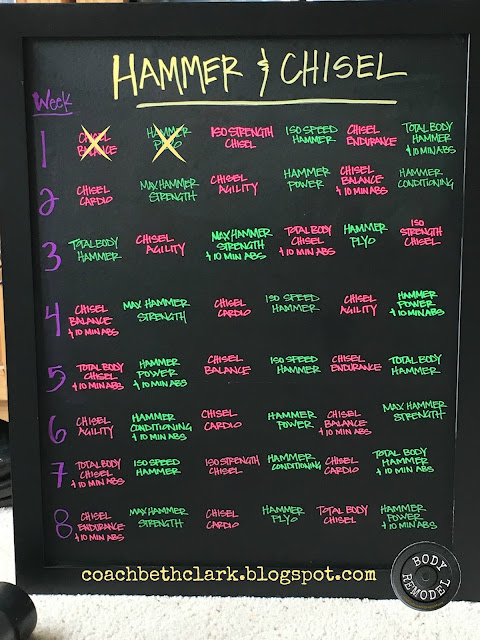 HAMMER & CHISEL
Week
1
CHISEL
BALANCE
HAMMER
PLYO
ISO STRENGTH
CHISEL
ISO SPEED
HAMMER
CHISEL
ENDURANCE
TOTAL BODY
HAMMER
+ 10 MIN ABS
2
CHISEL
CARDIO
MAX HAMMER
STRENGTH
CHISEL
AGILITY
HAMMER
POWER
CHISEL
BALANCE
+ 10 MIN ABS
HAMMER
CONDITIONING
3
TOTAL BODY
HAMMER
CHISEL
AGILITY
MAX HAMMER
STRENGTH
+ 10 MIN ABS
TOTAL BODY
CHISEL
+ 10 MIN ABS
HAMMER
PLYO
ISO
STRENGTH
CHISEL
4
CHISEL
BALANCE
+ 10 MIN ABS
MAX HAMMER
STRENGTH
CHISEL
CARDIO
ISO SPEED
HAMMER
CHISEL
AGILITY
HAMMER
POWER
+ 10 MIN ABS
5
TOTAL BODY
CHISEL
+ 10 MIN ABS
HAMMER
POWER
+ 10 MIN ABS
CHISEL
BALANCE
ISO SPEED
HAMMER
CHISEL
ENDURANCE
TOTAL BODY
HAMMER
6
CHISEL
AGILITY
HAMMER
CONDITIONING
+ 10 MIN ABS
CHISEL
CARDIO
HAMMER
POWER
CHISEL
BALANCE
+ 10 MIN ABS
MAX HAMMER
STRENGTH
7
TOTAL BODY
CHISEL
+ 10 MIN ABS
ISO SPEED
HAMMER
ISO STRENGTH
CHISEL
HAMMER
CONDITIONING
CHISEL
CARDIO
TOTAL BODY
HAMMER
+ 10 MIN ABS
8
CHISEL
ENDURANCE
+ 10 MIN ABS
MAX HAMMER
STRENGTH
CHISEL
CARDIO
HAMMER
PLYO
TOTAL BODY
CHISEL
HAMMER
POWER
+ 10 MIN ABS
coachbethclark.blogspot.com
BODY
REMODEL